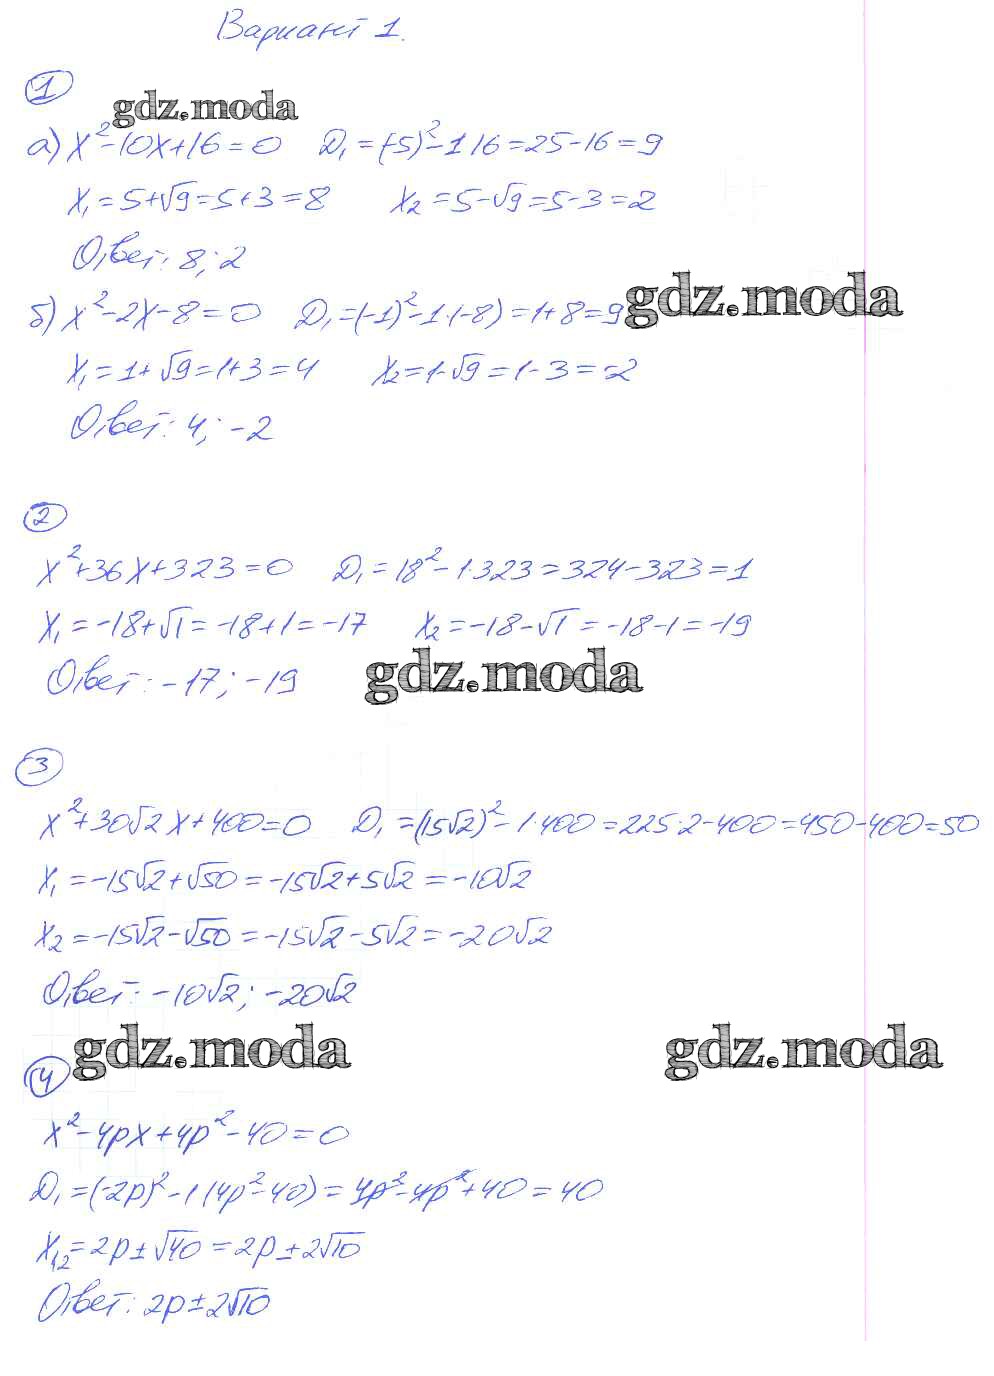 Вариант 1.
1
gdz.moda
а) x²-10x+16=0 D₁=(-5)²-1·16=25-16=9
x₁=5+√9=5+3=8 x₂=5-√9=5-3=2
Ответ: 8; 2
б) x²-2x-8=0 D₁=(-1)²-1·(-8)=1+8=9 gdz.moda
x₁=1+√9=1+3=4 x₂=1-√9=1-3=-2
Ответ: 4; -2
2
x²+36x+323=0 D₁=18²-1·323=324-323=1
x₁=-18+√1=-18+1=-17 x₂=-18-√1=-18-1=-19
Ответ: -17; -19 gdz.moda
3
x²+30√2x+400=0 D₁=(15√2)²-1·400=225·2-400=450-400=50
x₁=-15√2+√50=-15√2+5√2=-10√2
x₂=-15√2-√50=-15√2-5√2=-20√2
Ответ: -10√2; -20√2
gdz.moda gdz.moda
4
x²-4px+4p²-40=0
D₁=(-2p)²-1(4p²-40)=4p²-4p²+40=40
x₁,₂=2p±√40=2p±2√10
Ответ: 2p±2√10